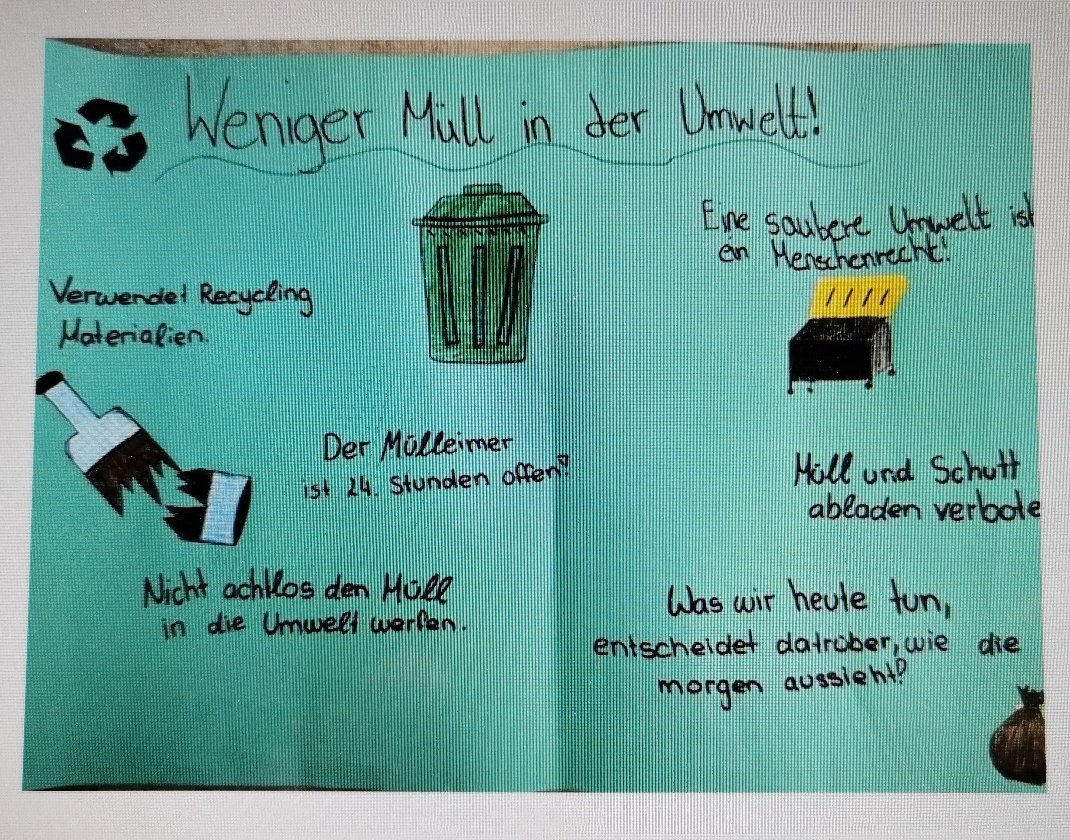 Weniger Müll in der Umwelt!
Eine saubere Umwelt ist
ein Menschenrecht!
Verwendet Recycling
Materialien.
Der Mülleimer
ist 24. Stunden offen?
Müll und Schutt
abladen verbote
Nicht achtlos den Müll
in die Umwelt werfen.
Was wir heute tun,
entscheidet datrüber, wie die
morgen aussieht?